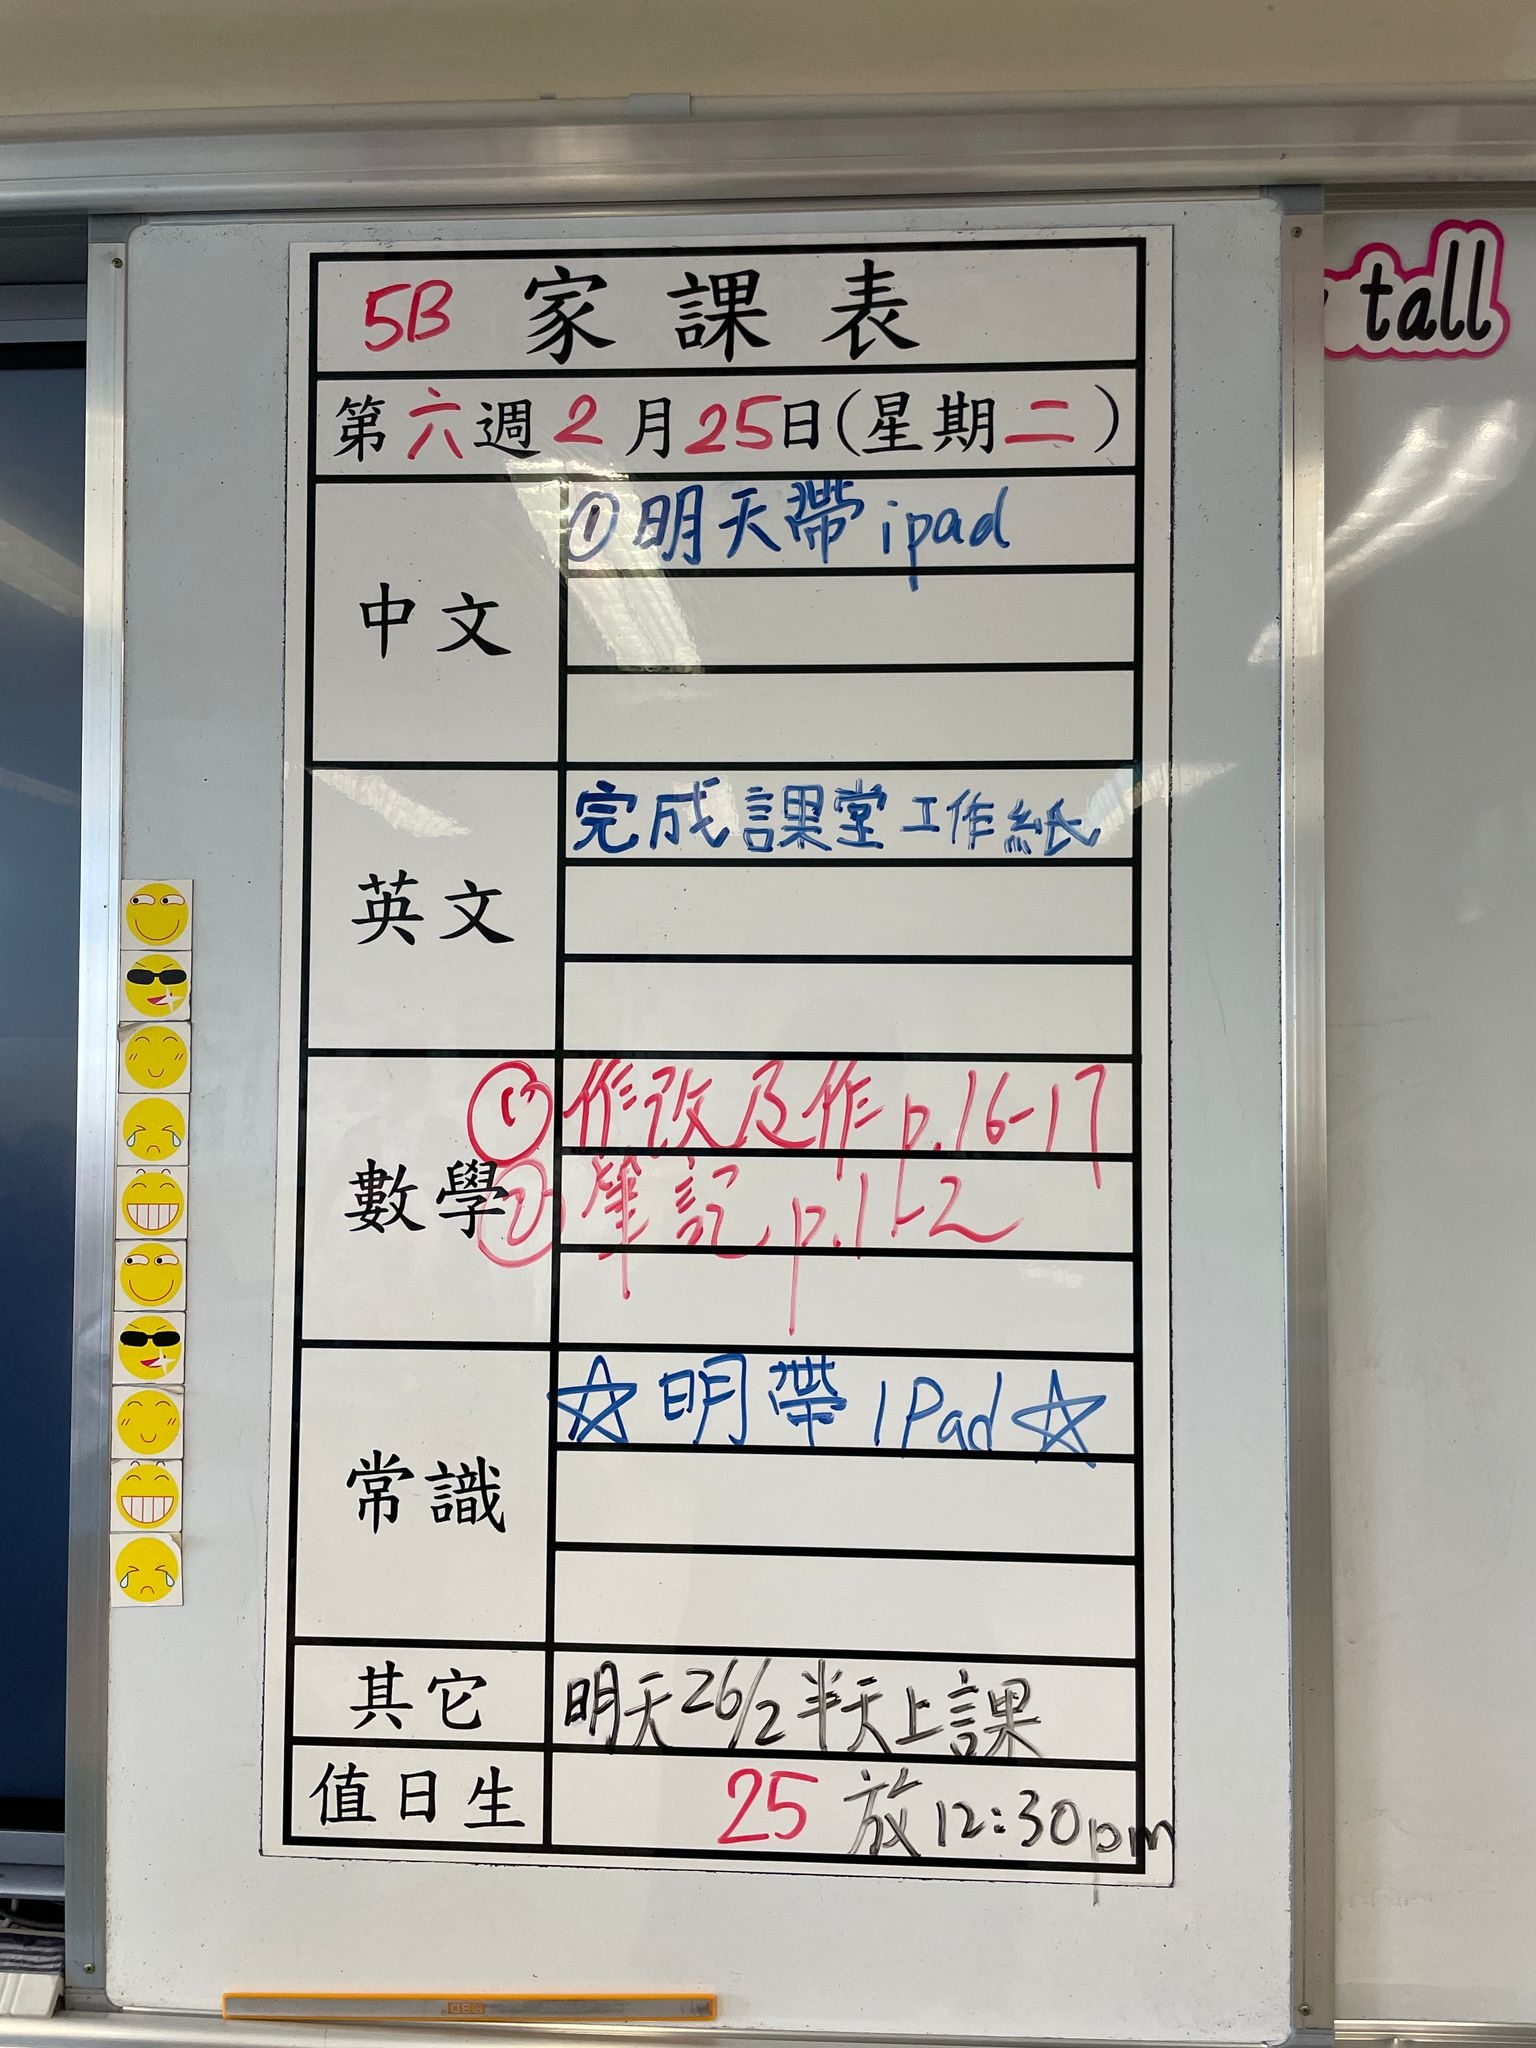 5B 家課表
tall
第六週2月25日(星期二)
中文
①明天帶ipad
英文
完成課堂工作紙
數學
① 修改及作p.16-17
② 筆記p.11-2
常識
☆明帶IPad☆
其它
明天26/2半天上課
值日生
25 放12:30pm